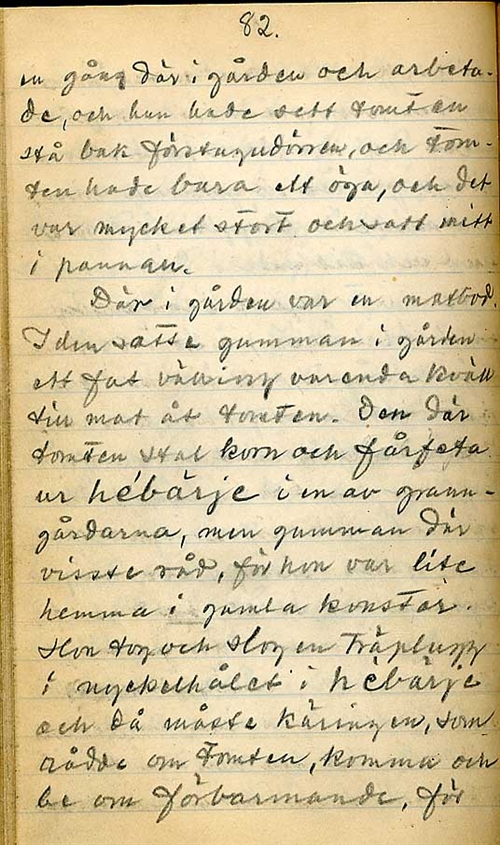 82.
en gång där i gården och arbeta-
de, och hun hade sett tomten
stå bak förstugudörren, och Tom-
ten hade bara ett öga, och det
var mycket stort och satt mitt
i pannan.
Där i gården var en matbod
I den satte gumman i gården
ett fat välling varenda kväll
till mat åt tomten. Den där
tomten stal korn och fårfeta
ur hébärje i en av grann-
gårdarna, men gumman där
visste råd, för hon var lite
hemma i gamla konster.
Hon tog och slog en Träplugg
i nyckelhålet i hèbärje
och då måste käringen, som
rådde om Tomten, komma och
be om förbarmande, för